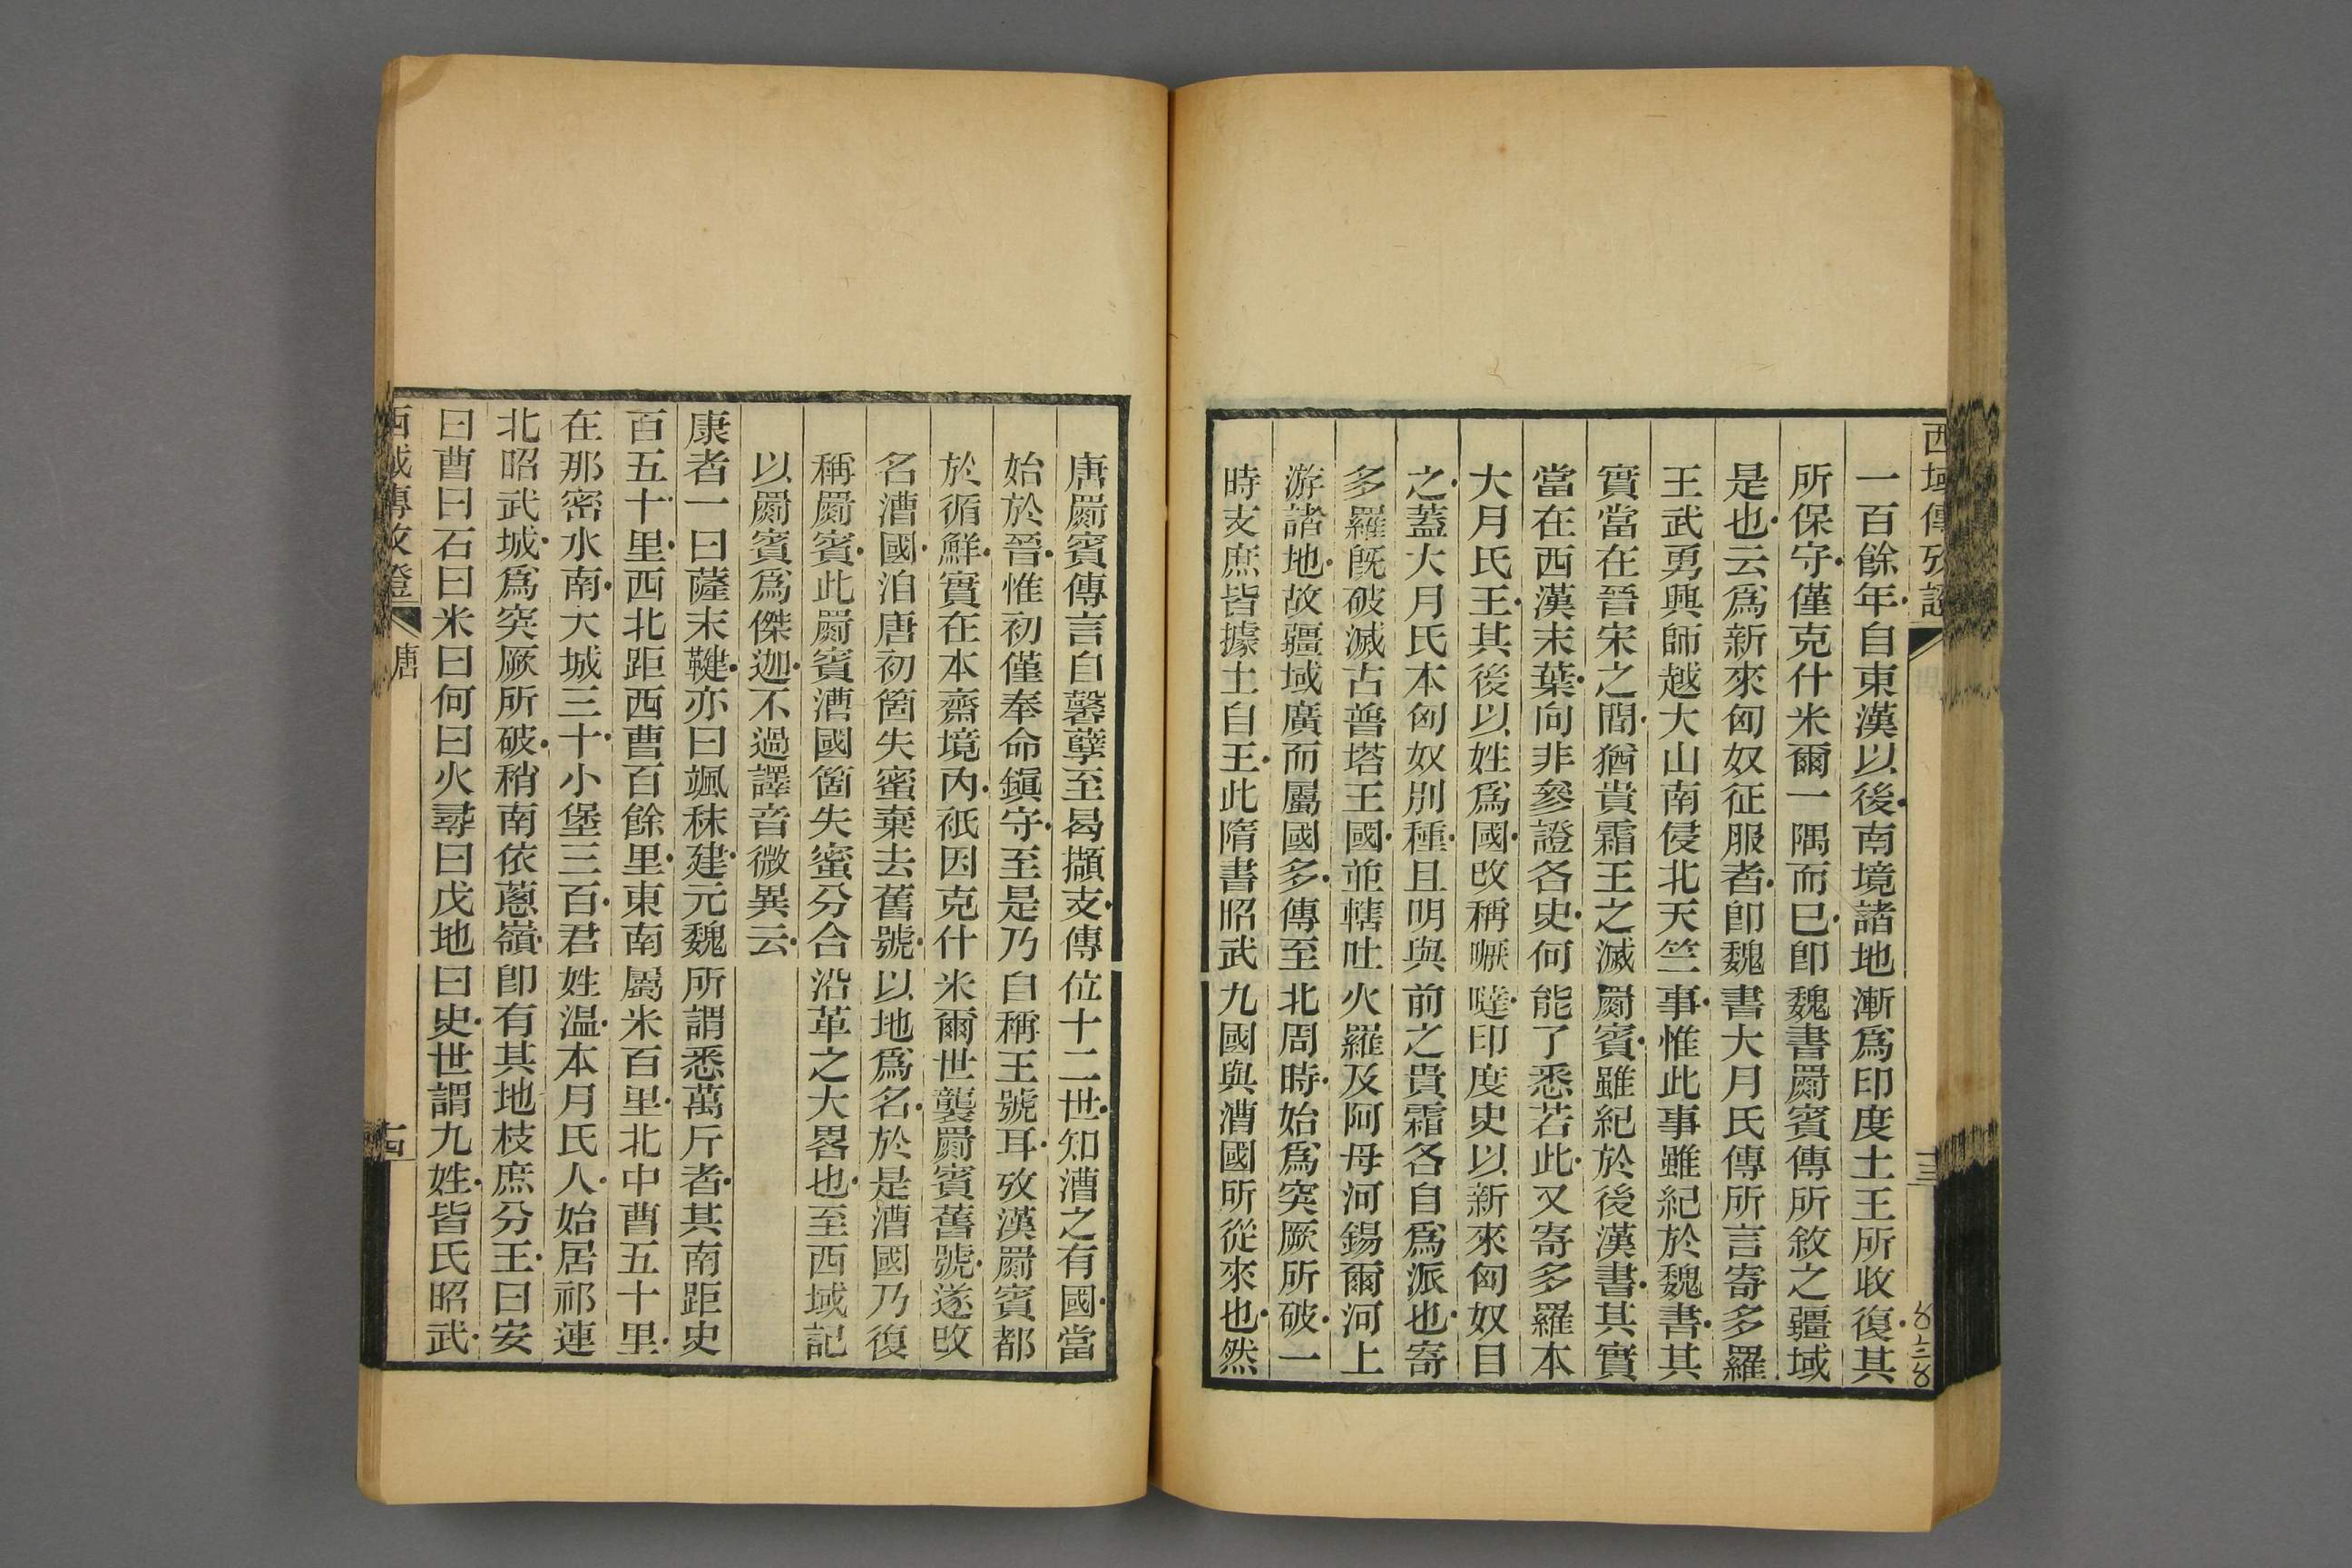 西域傳攷證
十三
一百餘年自東漢以後南境諸地漸爲印度土王所收復其
所保守僅克什米爾一隅而已卽魏書罽賓傳所敘之疆域
是也云爲新來匈奴征服者卽魏書大月氏傳所言寄多羅
王武勇興師越大山南侵北天竺事惟此事雖紀於魏書其
實當在晉宋之間猶貴霜王之滅罽賓雖紀於後漢書其實
當在西漢末葉向非參證各史何能了悉若此又寄多羅本
大月氏王其後以姓爲國改稱嚈噠印度史以新來匈奴目
之蓋大月氏本匈奴別種且明與前之貴霜各自爲派也寄
多羅既破滅古普塔王國並轄吐火羅及阿母河錫爾河上
游諸地故疆域廣而屬國多傳至北周時始爲突厥所破一
時支庶皆據土自王此隋書昭武九國與漕國所從來也然
唐罽賓傳言自馨孽至曷擷支傳位十二世知漕之有國當
始於晉惟初僅奉命鎭守至是乃自稱王號耳攷漢罽賓都
於循鮮實在本齋境內祇因克什米爾世襲罽賓舊號遂改
名漕國洎唐初箇失蜜棄去舊號以地爲名於是漕國乃復
稱罽賓此罽賓漕國箇失蜜分合沿革之大畧也至西域記
以罽賓爲傑迦不過譯音微異云
康者一曰薩末鞬亦曰颯秣建元魏所謂悉萬斤者其南距史
百五十里西北距西曹百餘里東南屬米百里北中曹五十里
在那密水南大城三十小堡三百君姓温本月氏人始居祁連
北昭武城爲突厥所破稍南依蔥嶺卽有其地枝庶分王曰安
曰曹曰石曰米曰何曰火尋曰戊地曰史世謂九姓皆氏昭武
西域傳攷證
唐
十四